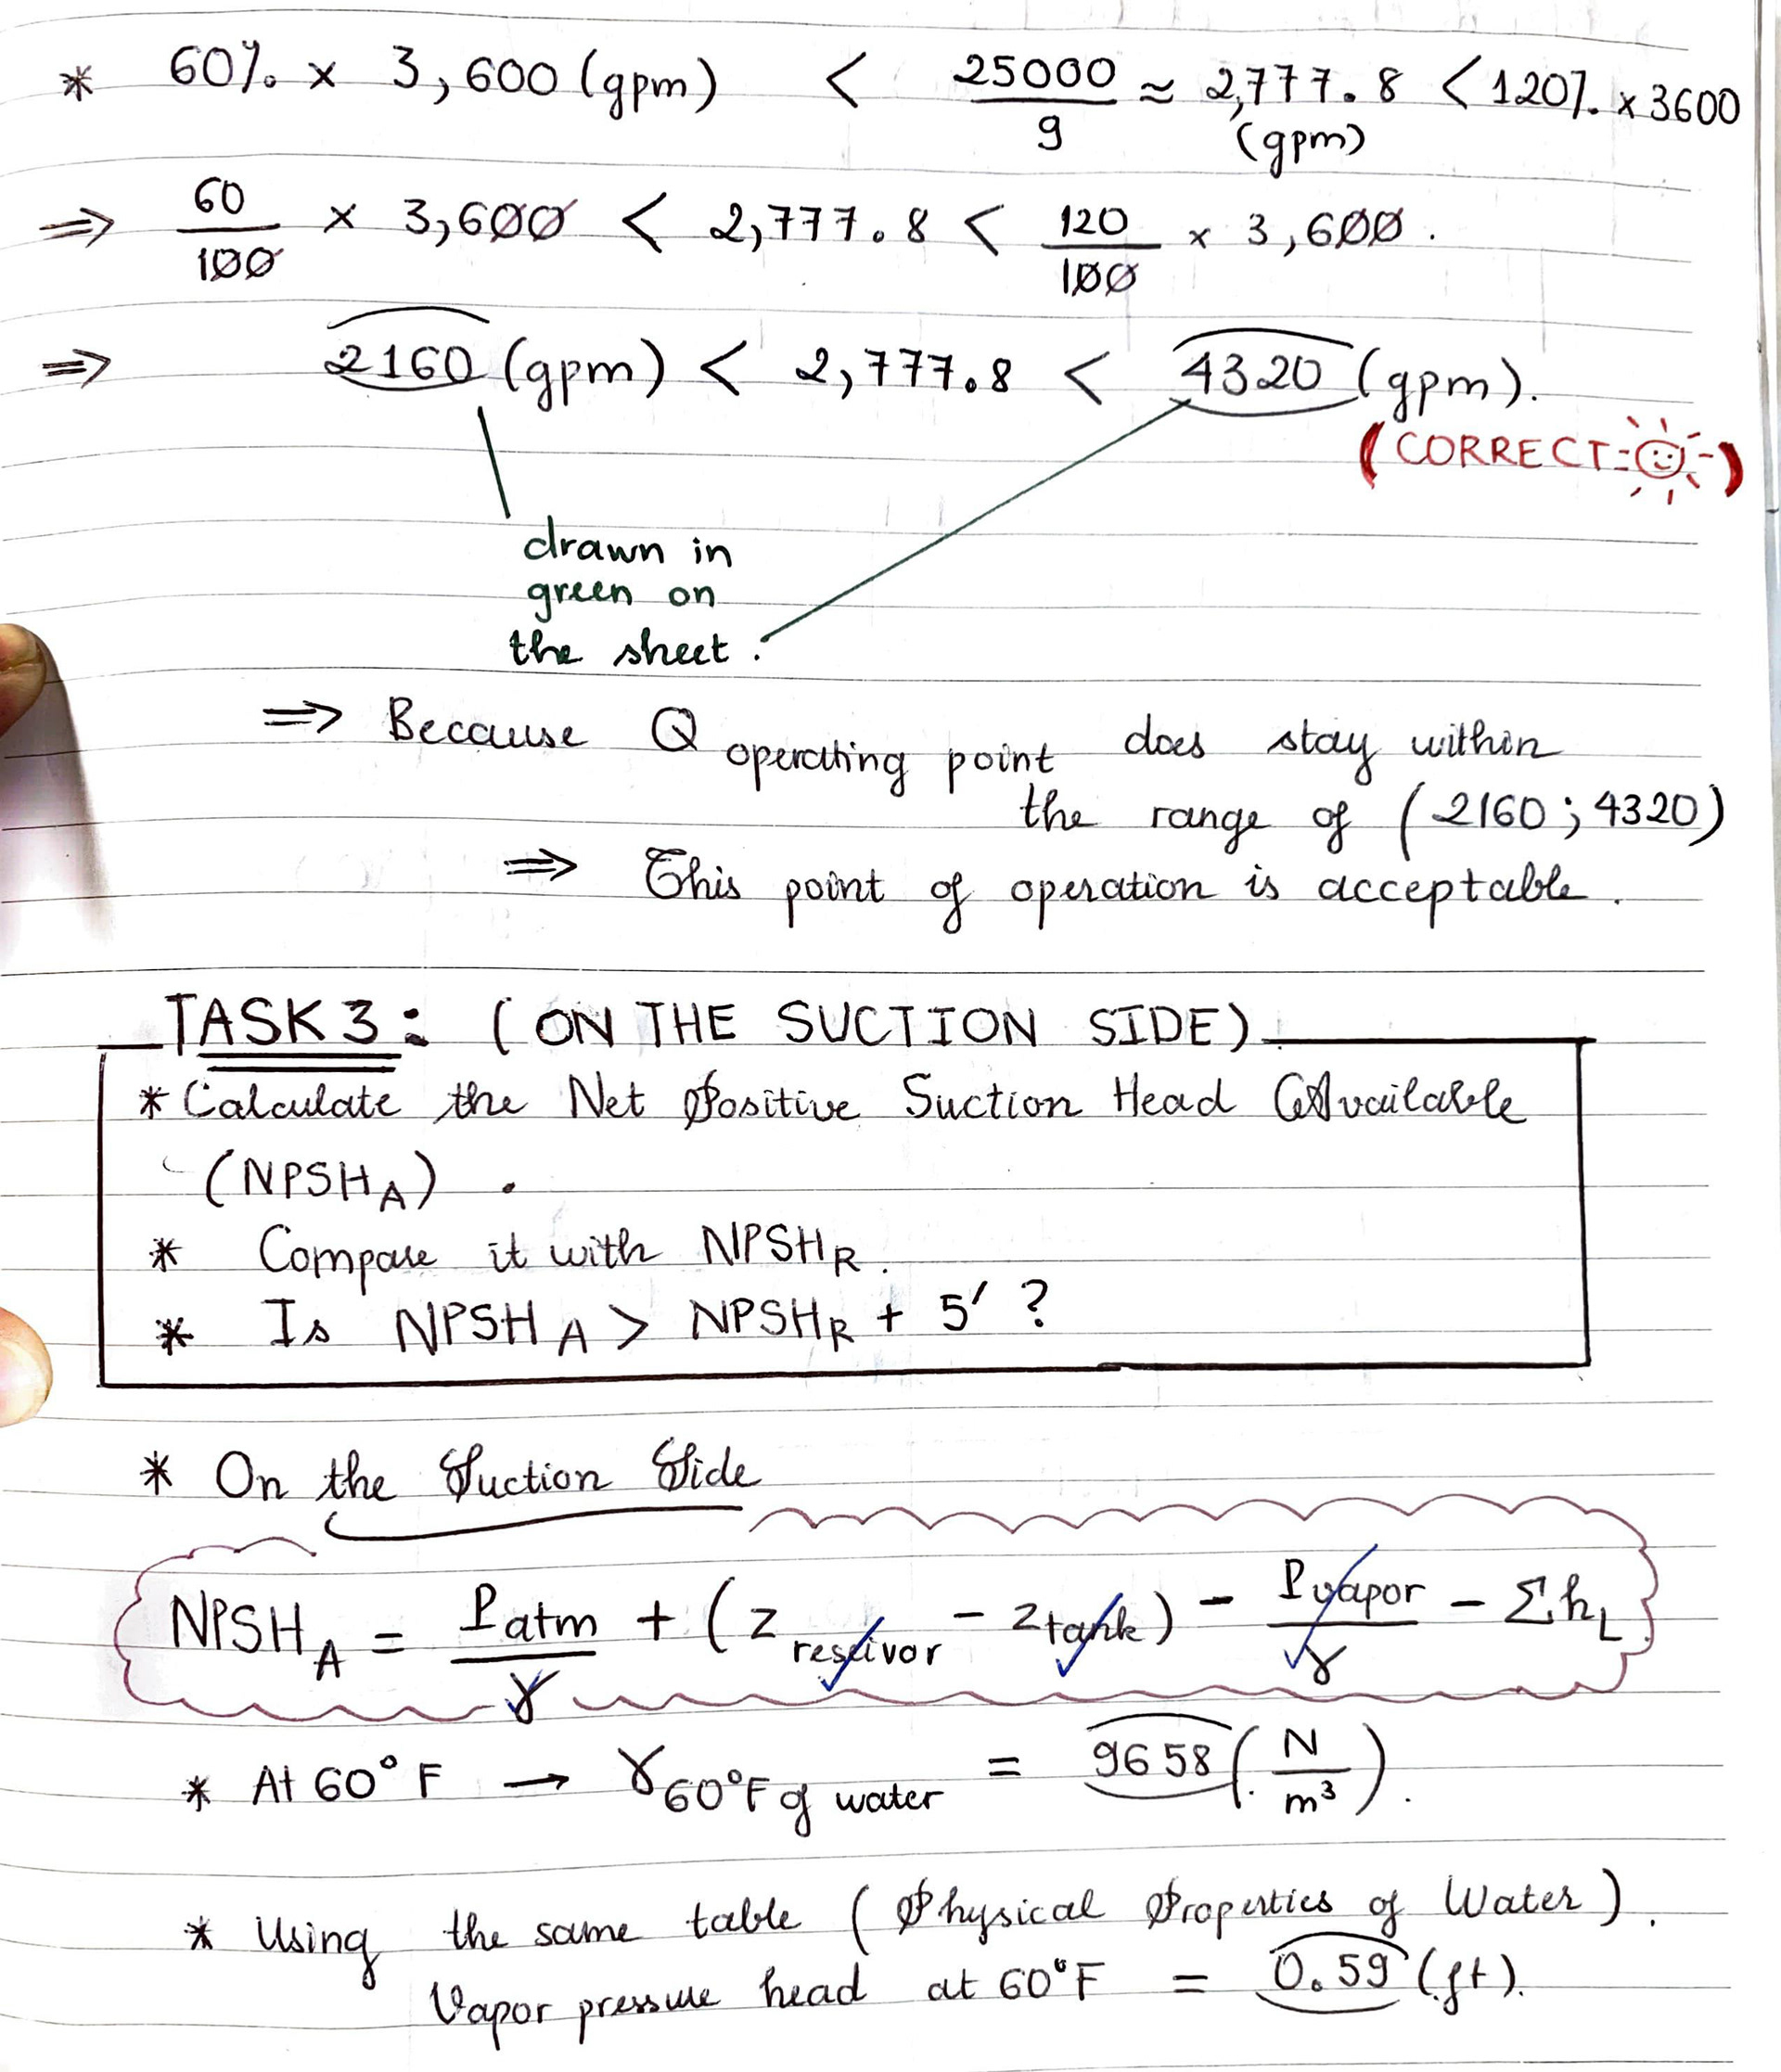 * 60% × 3,600 (gpm) < 25000/9 ≈ 2,777.8 (gpm) < 120% × 3600
⇒ 60/100 × 3,600 < 2,777.8 < 120/100 × 3,600.
⇒ 2160 (gpm) < 2,777.8 < 4320 (gpm).
(CORRECT)
drawn in
green on
the sheet.
⇒ Because Q operating point does stay within
the range of (2160; 4320)
⇒ This point of operation is acceptable.
TASK 3: (ON THE SUCTION SIDE)
* Calculate the Net Positive Suction Head Available
(NPSH_A).
* Compare it with NPSH_R.
* Is NPSH_A > NPSH_R + 5' ?
* On the Suction Side
NPSH_A = P atm/γ + (z reseivor - z tank) - P vapor/γ - Σh_L.
* At 60°F → γ 60°F of water = 9658 (N/m³).
* Using the same table (Physical Properties of Water).
Vapor pressure head at 60°F = 0.59 (ft).